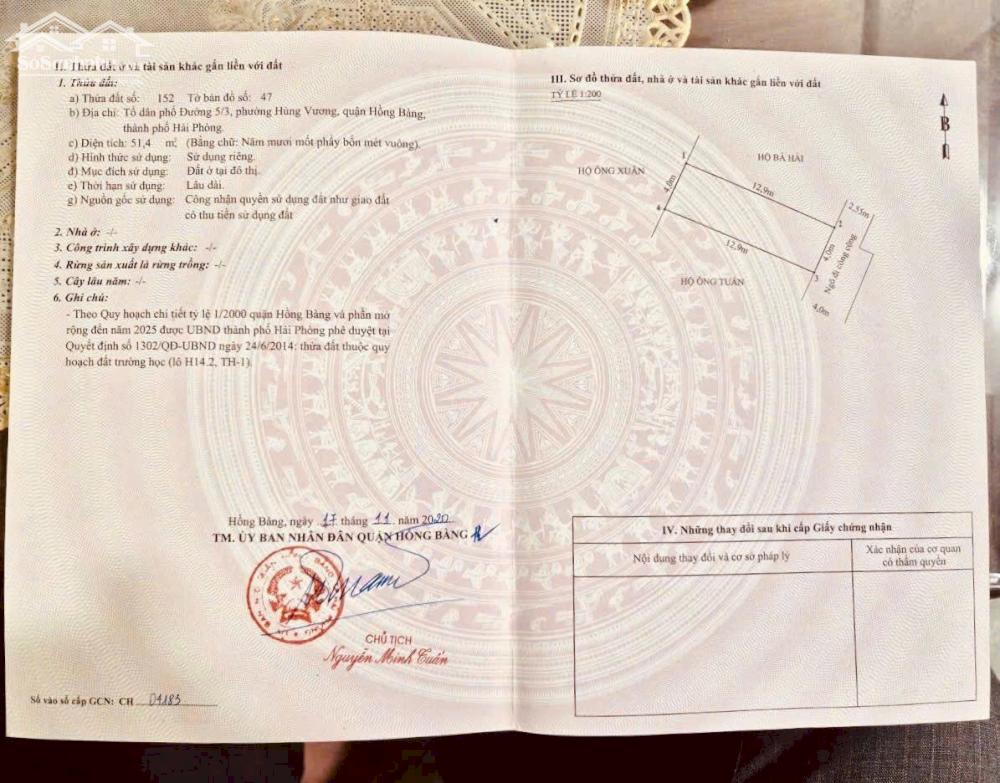 II. Thửa đất ở và tài sản khác gắn liền với đất
1. Thửa đất:
a) Thửa đất số: 152 Tờ bản đồ số: 47
b) Địa chỉ: Tổ dân phố Đường 5/3, phường Hùng Vương, quận Hồng Bàng,
thành phố Hải Phòng.
c) Diện tích: 51,4 m², (Bằng chữ: Năm mươi mốt phẩy bốn mét vuông).
d) Hình thức sử dụng: Sử dụng riêng.
đ) Mục đích sử dụng: Đất ở tại đô thị.
e) Thời hạn sử dụng: Lâu dài.
g) Nguồn gốc sử dụng: Công nhận quyền sử dụng đất như giao đất
có thu tiền sử dụng đất
2. Nhà ở: -/-
3. Công trình xây dựng khác: -/-
4. Rừng sản xuất là rừng trồng: -/-
5. Cây lâu năm: -/-
6. Ghi chú:
- Theo Quy hoạch chi tiết tỷ lệ 1/2000 quận Hồng Bàng và phần mở
rộng đến năm 2025 được UBND thành phố Hải Phòng phê duyệt tại
Quyết định số 1302/QĐ-UBND ngày 24/6/2014: thửa đất thuộc quy
hoạch đất trường học (lô H14.2, TH-1).
Hồng Bàng, ngày 17 tháng 11 năm 2020
TM. ỦY BAN NHÂN DÂN QUẬN HỒNG BÀNG
CHỦ TỊCH
Nguyễn Minh Tuấn
Số vào sổ cấp GCN: CH 04183
III. Sơ đồ thửa đất, nhà ở và tài sản khác gắn liền với đất
TỶ LỆ 1:200
B
HỘ BÀ HẢI
HỘ ÔNG XUÂN
1
4,0m
12,9m
4
2
2,55m
12,9m
4,0m
Ngõ đi công cộng
3
4,0m
HỘ ÔNG TUẤN
IV. Những thay đổi sau khi cấp Giấy chứng nhận
Nội dung thay đổi và cơ sở pháp lý
Xác nhận của cơ quan
có thẩm quyền